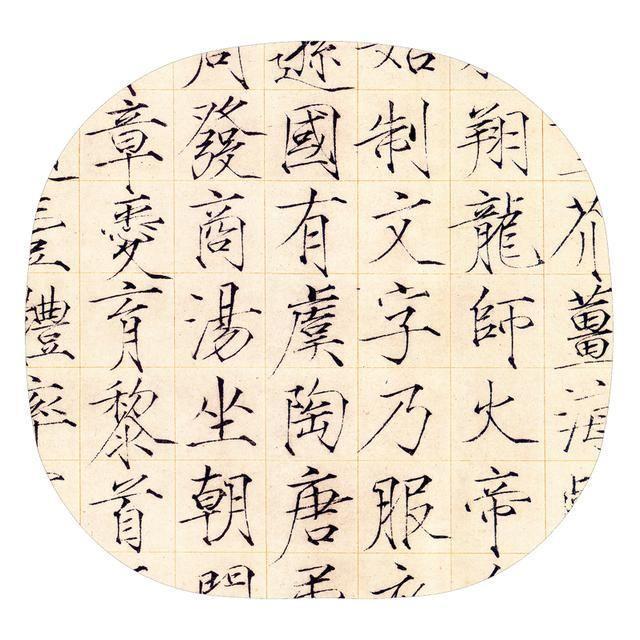 芥薑海
翔龍師火帝
始制文字乃服衣
遜國有虞陶唐弔
周發商湯坐朝問
章愛育黎首
體率